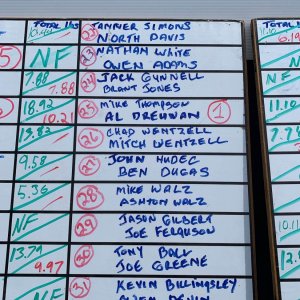 TOTAL LBS TANNER SIMONS TOTAL LBS
NORTH DAVIS
NF 23 NATHAN WHITE
OWEN ADAMS
7.88 24 JACK GUNNELL
7.88 BRANT JONES
18.92 25 MIKE THOMPSON 1
10.21 AL DREHWAN
13.82 26 CHAD WENTZELL
MITCH WENTZELL
9.58 27 JOHN HUDEC
BEN DUGAS
5.36 28 MIKE WALZ
ASHTON WALZ
NF 29 JASON GILBERT
JOE FERGUSON
13.79 30 TONY BALL
9.97 JOE GREENE
NF 31 KEVIN BILLINGSLEY